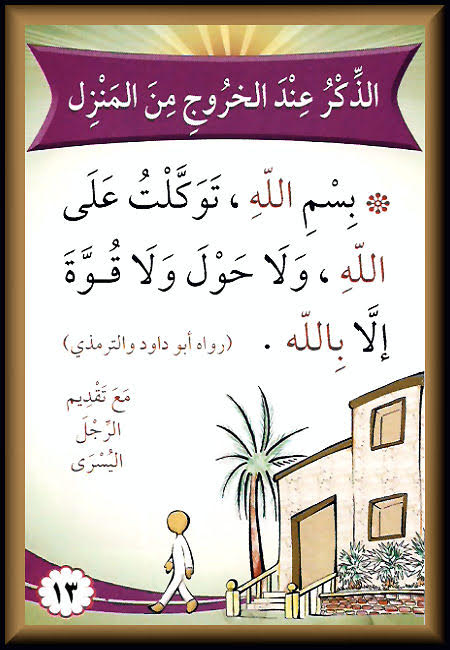 الذِّكْرُ عِنْدَ الخرُوجِ مِنَ المَنْزِل
❁ بِسْمِ اللّهِ ، تَوَكَّلْتُ عَلَى
اللّهِ ، وَلَا حَوْلَ وَلَا قُــوَّةَ
إلَّا بِاللّه . (رواه أبو داود والترمذي)
مَعَ تَقْدِيم
الرِّجْلَ
اليُسْرَى
١٣